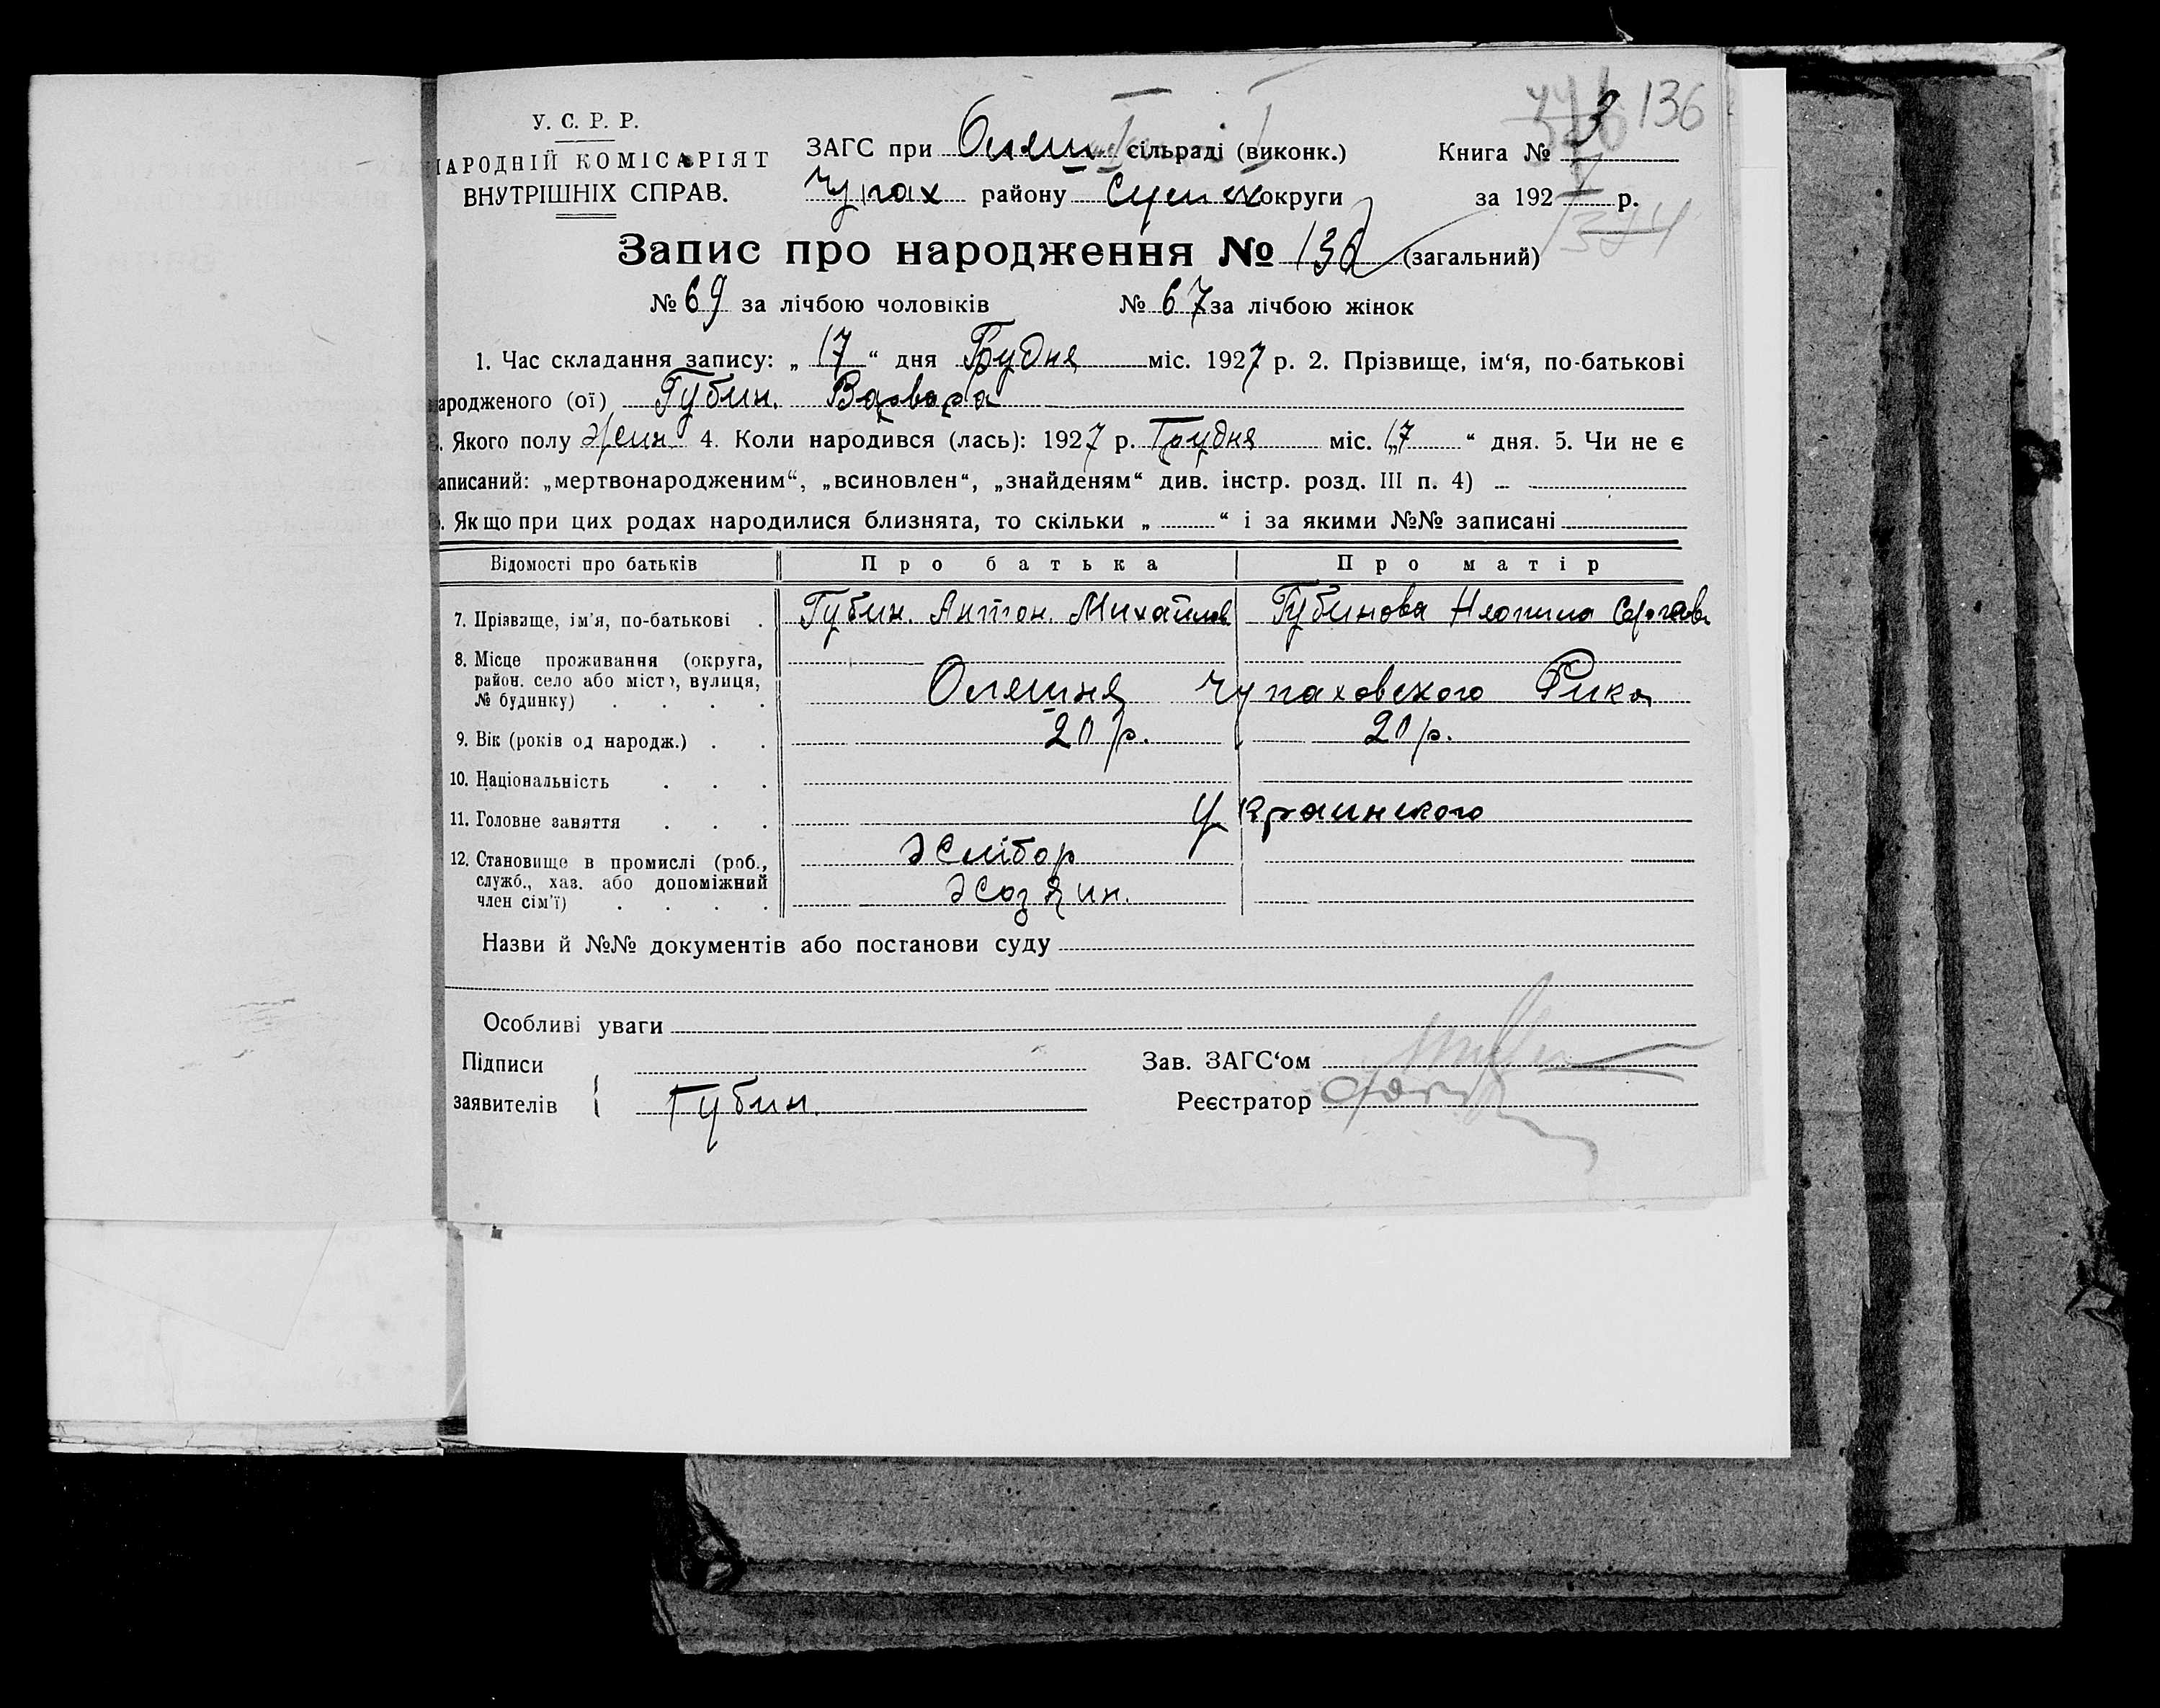 136
У. С. Р. Р.
НАРОДНІЙ КОМІСАРІЯТ
ВНУТРІШНІХ СПРАВ.
ЗАГС при Оляш сільраді (виконк.)
Чупах району Сумск округи
Книга № 3
за 1927 р.
Запис про народження № 136 (загальний)
№ 69 за лічбою чоловіків № 67 за лічбою жінок
1. Час складання запису: „ 17 “ дня Грудня міс. 1927 р. 2. Прізвище, ім‘я, по-батькові
ародженого (ої) Губин. Варвара
. Якого полу Жен 4. Коли народився (лась): 1927 р. Грудня міс. 17 “ дня. 5. Чи не є
аписаний: „мертвонародженим“, „всиновлен“, „знайденям“ див. інстр. розд. III п. 4)
. Якщо при цих родах народилися близнята, то скільки „ “ і за якими №№ записані
Відомості про батьків Про батька Про матір
7. Прізвище, ім'я, по-батькові Губин. Антон. Михайлов Губинова
8. Місце проживання (округа,
район. село або місто, вулиця,
№ будинку)
Оляшня Чупаховского Рика
9. Вік (років од народж.) 20 р. 20 р.
10. Національність
11. Головне заняття Украинского
12. Становище в промислі (роб.,
служб., хаз. або допоміжний
член сім'ї)
Хлібор
Хозяин.
Назви й №№ документів або постанови суду
Особливі уваги
Підписи
заявителів Губин.
Зав. ЗАГС‘ом
Реєстратор